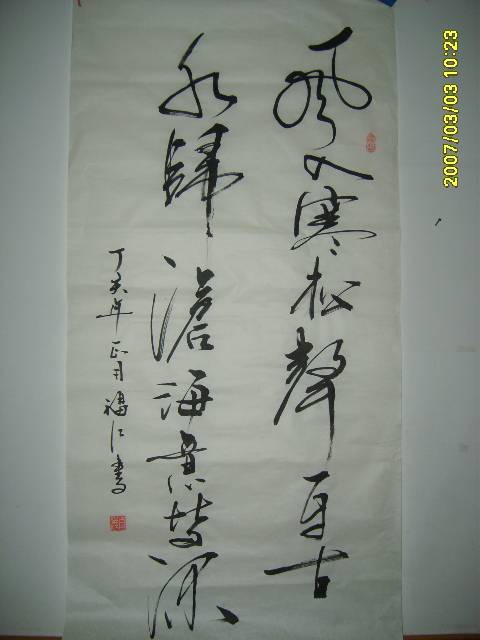 風入寒松聲自古
水歸滄海意皆深
丁亥年正月福江書
2007/03/03 10:23